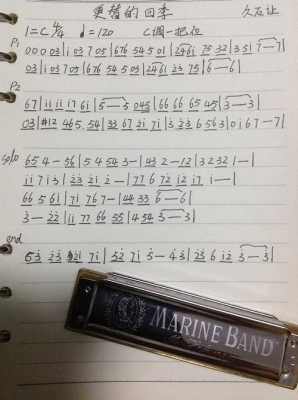 更替的四季
久石让
1=C 4/4 ♩=120 C调一把位
P1
00003|1 03 7 05|676 54 5 01|2461 75 32|3 51 7—7|
03|1 03 7 05|676 54 5 03|2461 23 75|6—6|
P2
67|11 11 17 61|5—5 045|66 66 65 45|3—3|
03|#12 465. 54|33 67 21 71|3 23 6 563|0167—7|
solo
65 4—56|5 4 54 3—|43 2—12|3232 1—|
11 7 13|23 21 2—|77 6 72 12 17 1—|
66 5 61|71 76 7—|44 33 6—6|
3—22|11 77 66 55|4 54 3—3|
end
53 23 #21 71|52 71 5—43|23 6 12 3—3|
MARINE BAND